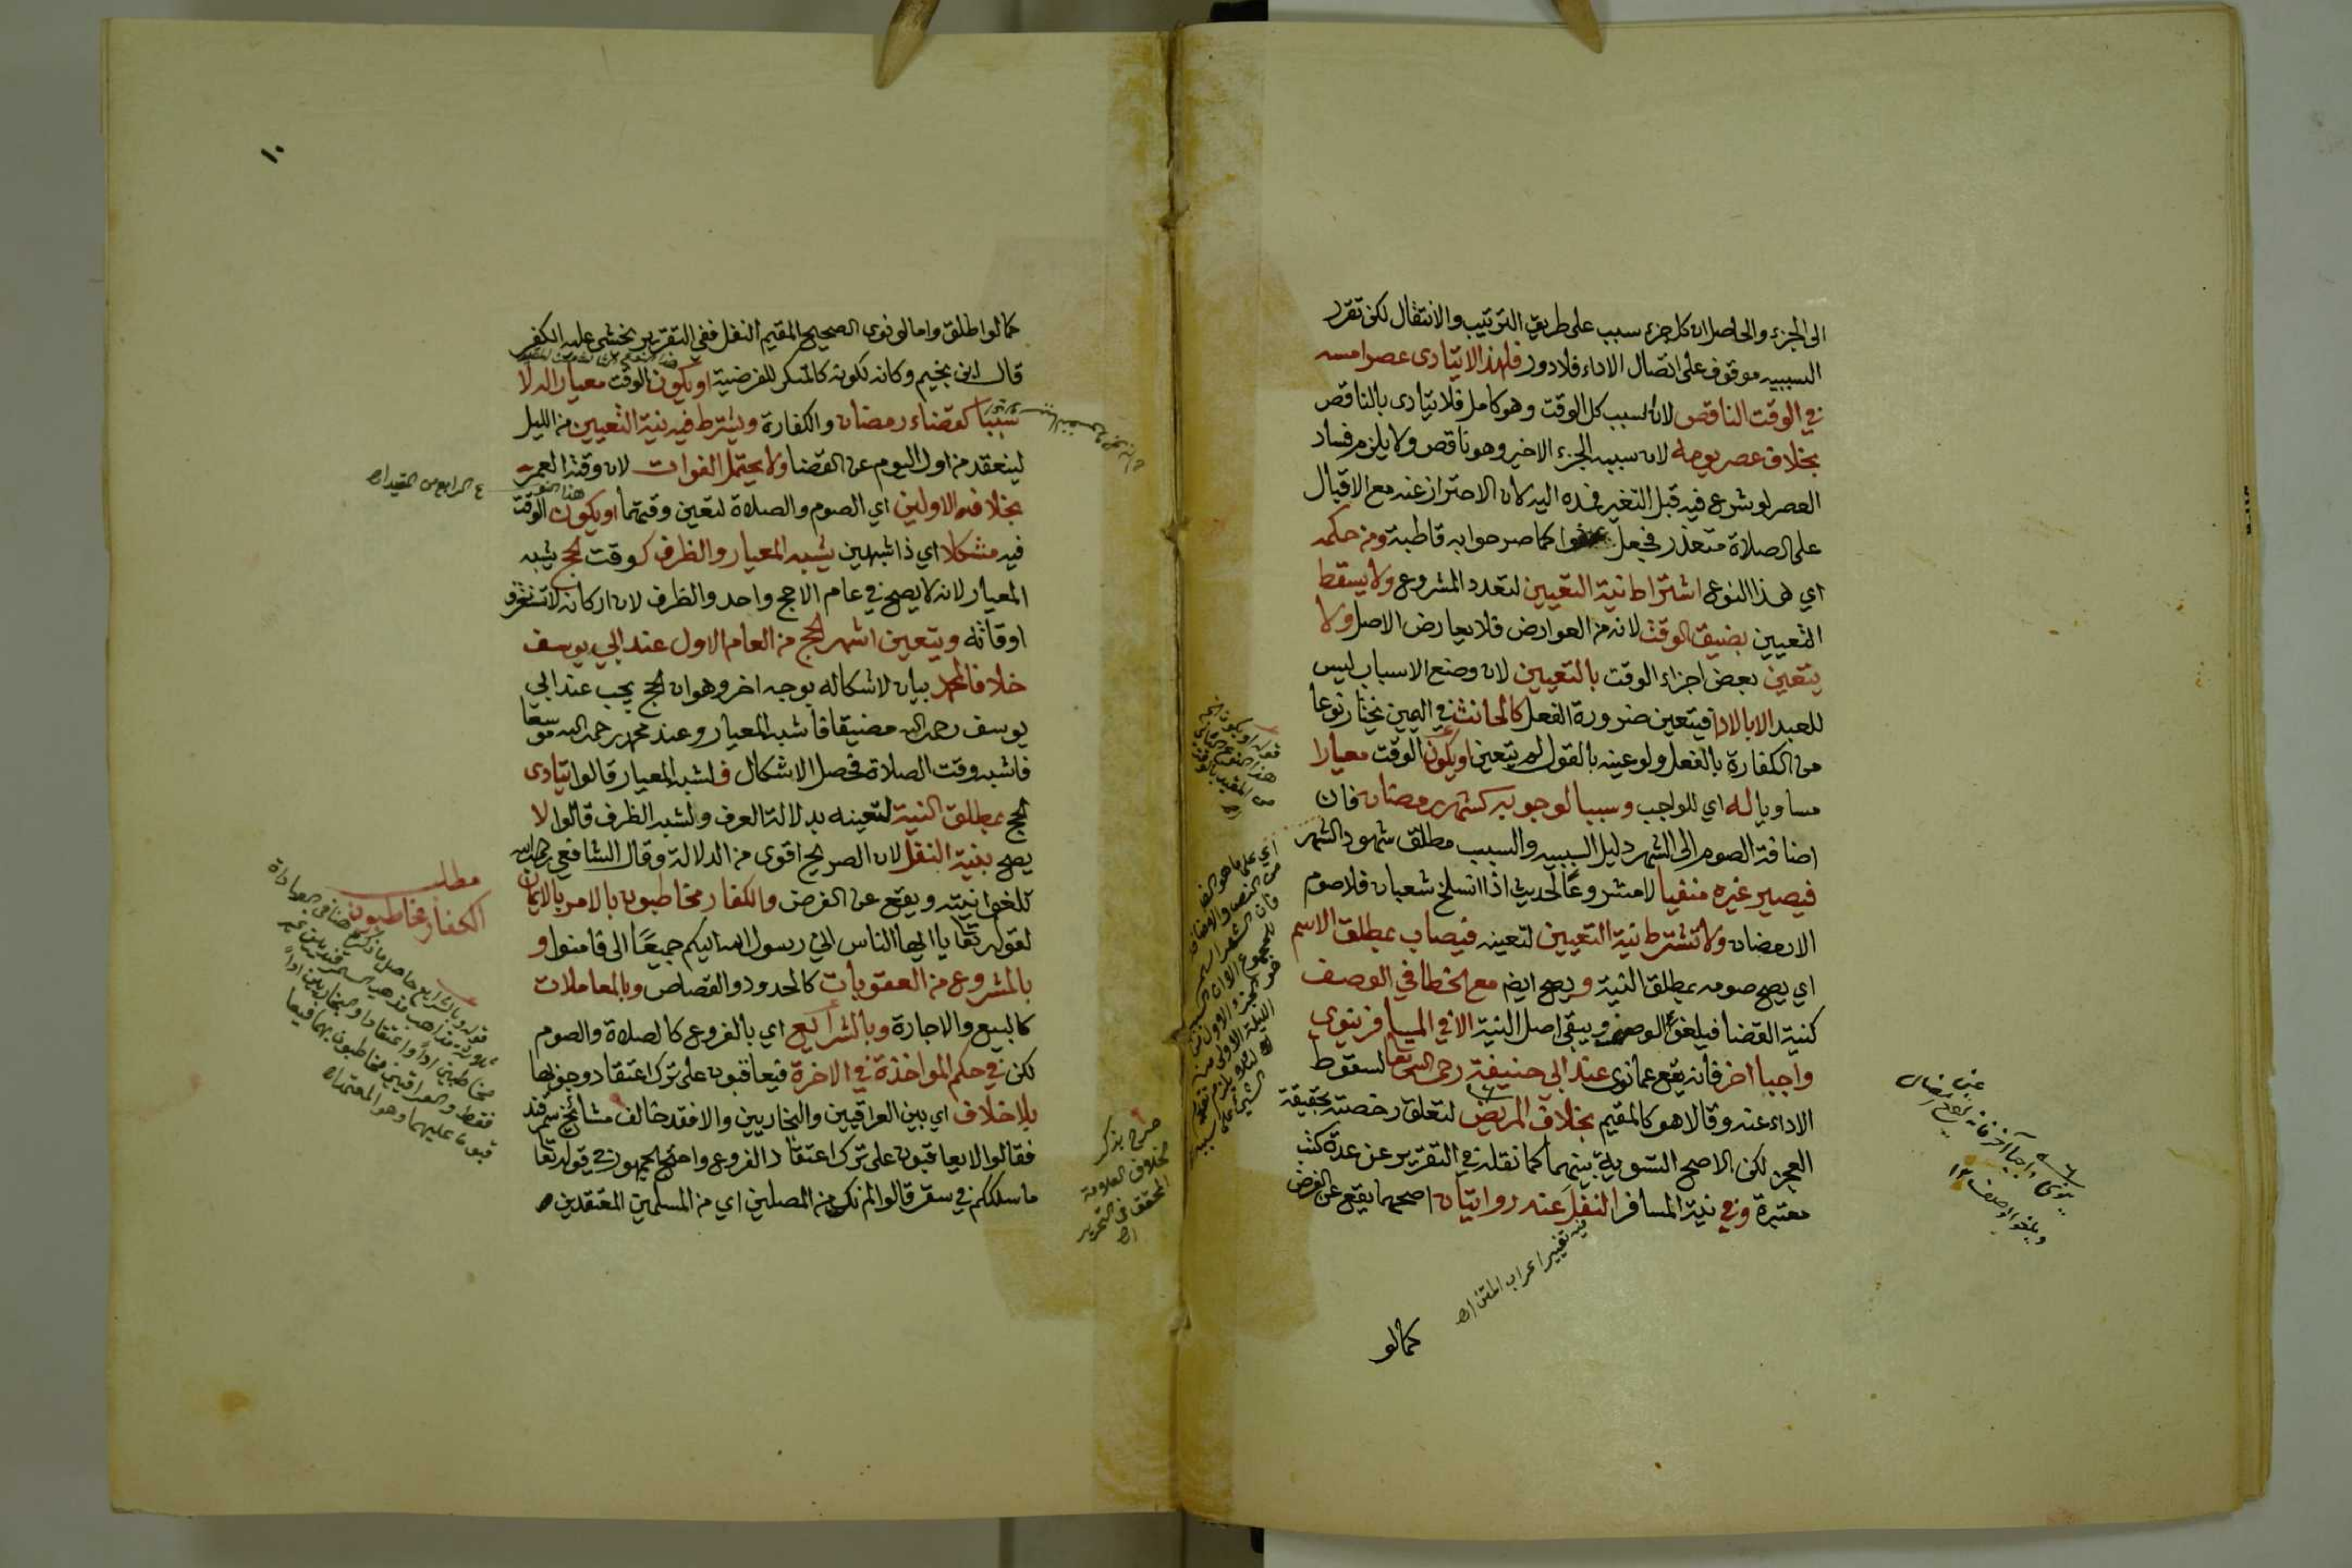 الى الجزء والحاصل ان كل جزء سبب على طريق الترتيب والانتقال لكن تقرر
السببيه موقوف على اتصال الاداء فلا دور فلهذا لا يتادى عصر امسه
في الوقت الناقص لان السبب كل الوقت وهو كامل فلا يتادى بالناقص
بخلاف عصر يومه لان سببه الجزء الاخير وهو ناقص ولا يلزم فساد
العصر لو شرع فيه قبل التغير فمده اليه لان الاحتراز عنه مع الاقبال
على الصلاة متعذر فجعل عفوا كما صرحوا به قاطبة ومن حكمه
اي هذا النوع اشتراط نية التعيين لتعدد المشروع ولا يسقط
التعيين بضيق الوقت لانه من العوارض فلا يعارض الاصل ولا
يتعين بعض اجزاء الوقت بالتعيين لان وضع الاسباب ليس
للعبد الا بالادا فيتعين ضرورة الفعل كالحانث في اليمين يختار نوعا
من الكفارة بالفعل ولو عينه بالقول لم يتعين او يكون الوقت معيارا
مساويا له اي للواجب وسببا لوجوبه كشهر رمضان فان
اضافة الصوم الى الشهر دليل السببيه والسبب مطلق شهود الشهر
فيصير غيره منفيا لا مشروعا لحديث اذا انسلخ شعبان فلا صوم
الا رمضان ولا تشترط نية التعيين لتعينه فيصاب بمطلق الاسم
اي يصح صومه بمطلق النية ويصح ايضم مع الخطا في الوصف
كنية القضا فيلغو الوصف ويبقى اصل النية الا في المسافر ينوي
واجبا اخر فانه يقع عما نوى عند ابي حنيفة رحمه الله تعا لسقوط
الاداء عنه وقالا هو كالمقيم بخلاف المريض لتعلق رخصته بحقيقة
العجز لكن الاصح التسوية بينهما كما نقله في التقرير عن عدة كتب
معتبرة وفي نية المسافر النفل عنه روايتان اصحهما يقع عن الفرض
فيه تغيير اعراب المتن اه
كما لو
ينوي واجبا آخر
ويلغو الوصف ١٢
١٠
كما لو اطلق واما لو نوى الصحيح المقيم النفل ففي التقرير يخشى عليه الكفر
قال ابن نجيم وكانه لكونه كالمنكر للفرضية او يكون الوقت معيارا له لا
سببا كقضاء رمضان والكفارة ويشترط فيه نية التعيين من الليل
لينعقد من اول اليوم عن القضا ولا يحتمل الفوات لان وقته العمر
بخلافه الاولين اي الصوم والصلاة لتعين وقتهما او يكون الوقت
هذا النوع
الرابع من المقيد اه
فيه مشكلا اي ذا شبهين يشبه المعيار والظرف كوقت الحج يشبه
المعيار لانه لا يصح في عام الا حج واحد والظرف لان اركانه لا تستغرق
اوقاته ويتعين اشهر الحج من العام الاول عند ابي يوسف
خلافا لمحمد بيان لاشكاله بوجه اخر وهو ان الحج يجب عند ابي
يوسف رحمه الله مضيقا فاشبه المعيار وعند محمد رحمه الله موسعا
فاشبه وقت الصلاة فحصل الاشكال فلشبه المعيار قالوا يتادى
الحج بمطلق النية لتعينه بدلالة العرف ولشبه الظرف قالوا لا
يصح بنية النفل لان الصريح اقوى من الدلالة وقال الشافعي رحمه الله
تلغوا نيته ويقع عن الفرض والكفار مخاطبون بالامر بالايمان
لقوله تعا يا ايها الناس اني رسول الله اليكم جميعا الى فامنوا و
بالمشروع من العقوبات كالحدود والقصاص وبالمعاملات
كالبيع والاجارة وبالشرائع اي بالفروع كالصلاة والصوم
لكن في حكم المواخذة في الاخرة فيعاقبون على ترك اعتقاد وجوبها
بلا خلاف اي بين العراقيين والبخاريين والا فقد خالف مشائخ سمرقند
فقالوا لا يعاقبون على ترك اعتقاد الفروع واحتج الجمهور بقوله تعا
ما سلككم في سقر قالوا لم نك من المصلين اي من المسلمين المعتقدين
مطلب
الكفار مخاطبون
مخاطبين اداء واعتقادا والبخاريين اداء
فقط والعراقيين مخاطبون بهما فيعا
قبون عليهما وهو المعتمد اه
صرح بذكر
خلاف العلامة
المحقق في التحرير
اه